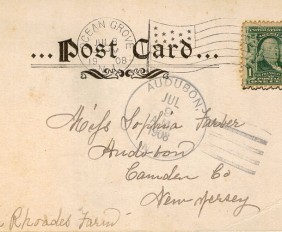 OCEAN GROVE
JUL
1908
N.J.
...Post Card...
1
AUDUBON,
JUL
1908
Miss Sophia Farber
Audubon
Camden Co
New Jersey
Rhoades Farm